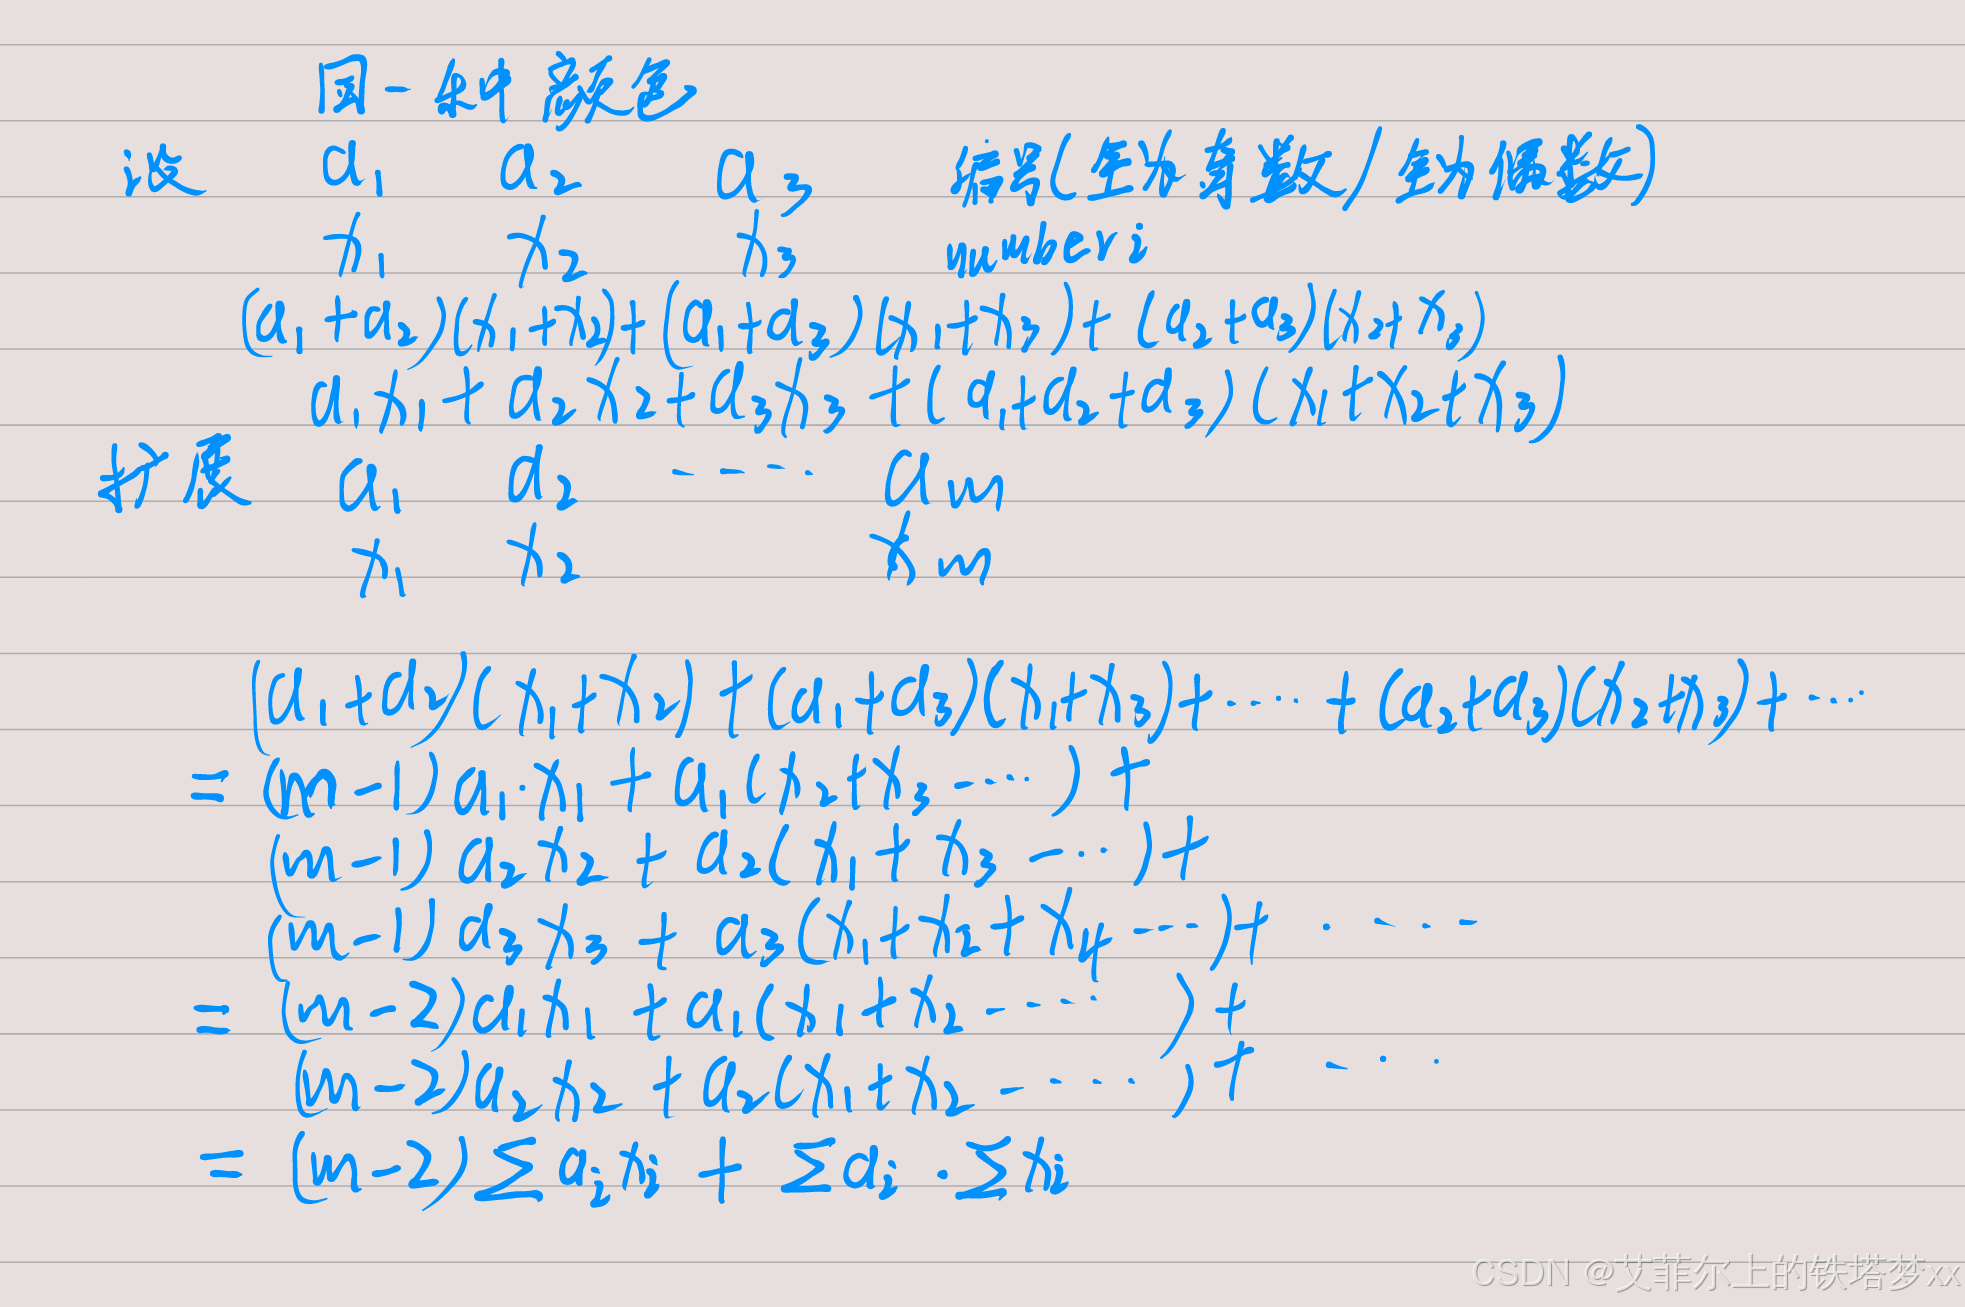 同一种颜色
设 a₁ a₂ a₃ 编号(全为奇数/全为偶数)
x₁ x₂ x₃ number i
(a₁+a₂)(x₁+x₂)+(a₁+a₃)(x₁+x₃)+(a₂+a₃)(x₂+x₃)
a₁x₁+a₂x₂+a₃x₃+(a₁+a₂+a₃)(x₁+x₂+x₃)
扩展 a₁ a₂ ····· aₘ
x₁ x₂ xₘ
(a₁+a₂)(x₁+x₂)+(a₁+a₃)(x₁+x₃)+·····+(a₂+a₃)(x₂+x₃)+····
=(m-1)a₁·x₁+a₁(x₂+x₃·····)+
(m-1)a₂x₂+a₂(x₁+x₃····)+
(m-1)a₃x₃+a₃(x₁+x₂+x₄····)+·····
=(m-2)a₁x₁+a₁(x₁+x₂·····)+
(m-2)a₂x₂+a₂(x₁+x₂·····)+····
=(m-2)∑aᵢxᵢ+∑aᵢ·∑xᵢ
CSDN @艾菲尔上的铁塔梦xx